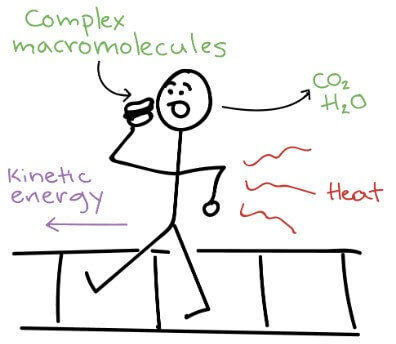 Complex
macromolecules
CO₂
H₂O
Kinetic
energy
Heat